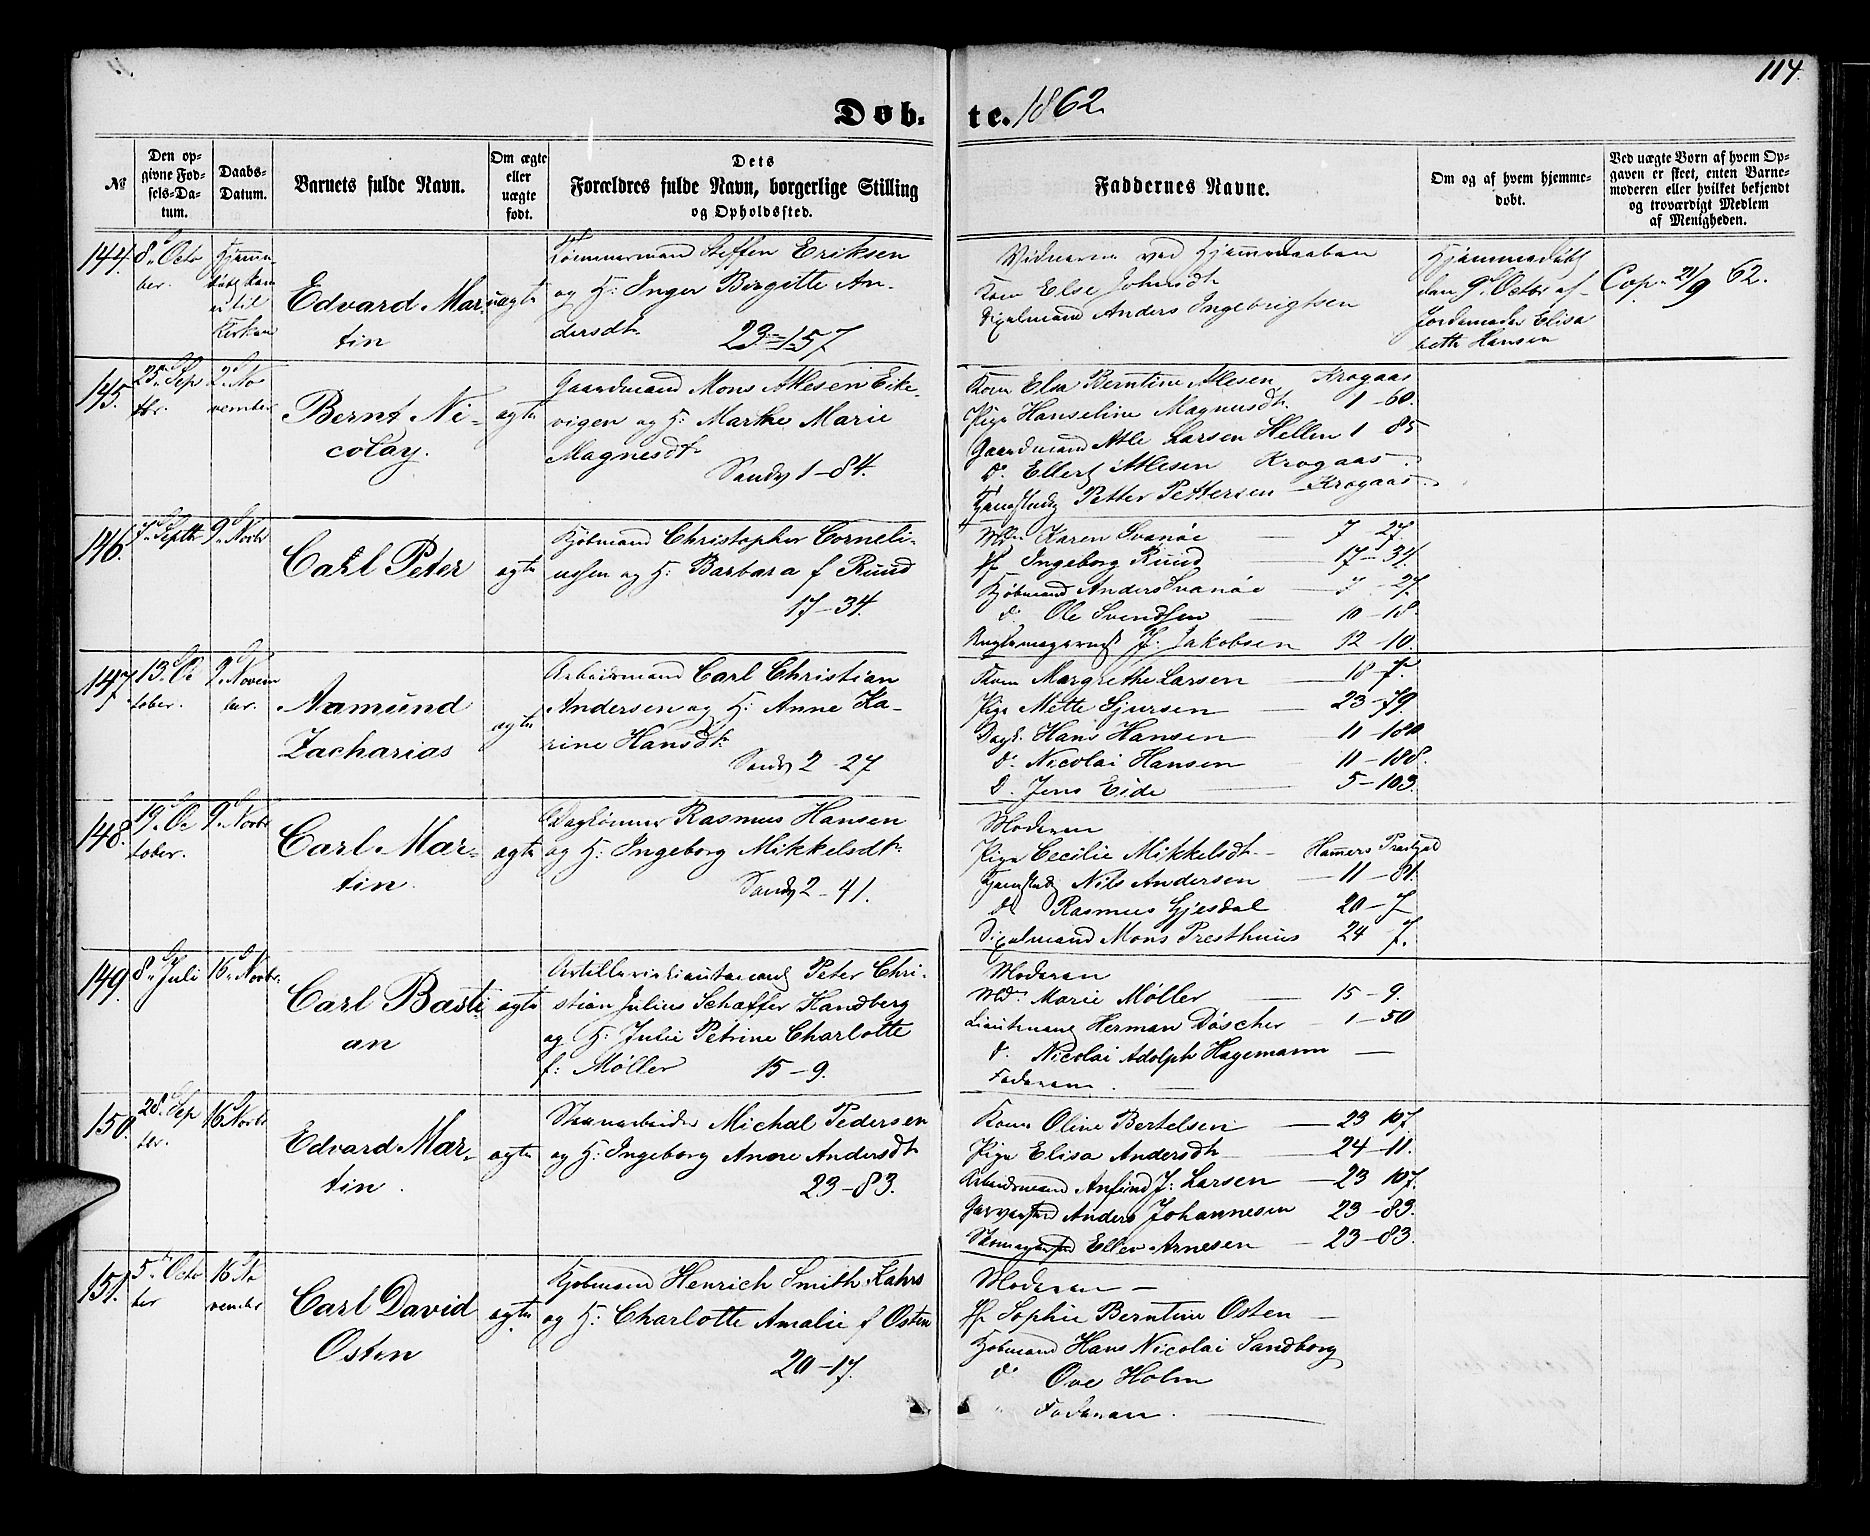 114.
Døb-te. 1862.
№
Den opgivne Fødsels-Datum.
Daabs-Datum.
Barnets fulde Navn.
Om ægte eller uægte født.
Dets Forældres fulde Navn, borgerlige Stilling og Opholdssted.
Faddernes Navne.
Om og af hvem hjemmedøbt.
Ved uægte Børn af hvem Opgaven er skeet, enten Barnemoderen eller hvilket bekjendt og troværdigt Medlem af Menigheden.
144. 8de Octo
ber.
Hjemme
døbt kom
ei til
Kirken
Edvard Mar
tin
uægte
Tømmermand Steffen Eriksen
og H: Inger Birgitte An-
dersdtr.
23-157
Vidnerne ved Hjemmedaaben
Kone Else Johnsdtr
Anders Ingebrigtsen
Hjemmedøbt
den 9de Octbr af
Jordemoder Elisa
beth Hansen
Cop. 21/9 62.
145. 25de Sep
tbr.
2de No
vember
Bernt Ni-
colay.
ægte
Gaardmand Mons Atlesen Eike-
vigen og H: Marthe Marie
Magnesdtr
Sandv 1-84.
Kone Elsa Berntine Atlesen Krogaas
Pige Hanseline Magnusdtr. 1-60.
Gaardmand Atle Larsen Hellen 1 85
do. Ellert Atlesen Krogaas
Petter Pettersen Krogaas
146. 7de Septbr 9de Novbr
Carl Peter
ægte
Kjøbmand Christopher Corneli-
ussen og H: Barbara f Ruud
17-34.
Md. Karen Svanøe 7 27.
Jf Ingeborg Ruud 17-34.
Kjøbmand Anders Svanøe 7-27.
do Ole Svendsen 10-18.
J: Jakobsen 12-10.
147. 13de Oc
tober.
9de Novem
ber.
Aamund
Zacharias
ægte
Arbeidsmand Carl Christian
Andersen og H: Anne Ka-
rine Hansdtr.
Sandv 2-27
Kone Margrethe Larsen 18-7.
Pige Mette Gjursen 23-79.
Dagl. Hans Hansen 11-180.
do. Nicolai Hansen 11-188.
D. Jens Eide 5-103.
148. 19de Oc
tober.
9de Novbr
Carl Mar-
tin.
ægte
Dagløner Rasmus Hansen
og H: Ingeborg Mikkelsdtr.
Sandv 2-41.
Moderen
Pige Cecilie Mikkelsdtr Hammers Prestgjæld
Nils Andersen 11-81.
do Rasmus Gjesdal 20-7
Mons Presthuus 24 7.
149. 8de Juli 16de Novbr.
Carl Basti
an
ægte
Artillerieløitnant Peter Chri-
stian Julius Schaffer Handberg
og H: Julie Petrine Charlotte
f: Møller 15-9.
Moderen
Md. Marie Møller 15-9.
Lieutenant Herman Döscher 1-50
d. Nicolai Adolph Hagemann
Faderen.
150. 28de Sep
ter.
16 Novbr
Edvard Mar-
tin.
ægte
Michal Pedersen
og H: Ingeborg Anne Andersdtr
23-83.
Kone Oline Bertelsen 23 107.
Pige Elisa Andersdtr 24-11.
Arbeidsmand Anfind J: Larsen 23 107.
Anders Johannesen 23-83.
Ellev Arnesen 23-83.
151. 5te Octo
ber
16 No
vember
Carl David
Osten
ægte
Kjøbmand Henrich Smith Lahrs
og H: Charlotte Amalie f Osten
20-17.
Moderen
Jf Sophie Berntine Osten
Kjøbmand Hans Nicolai Sandborg
do Ove Holm
Faderen.